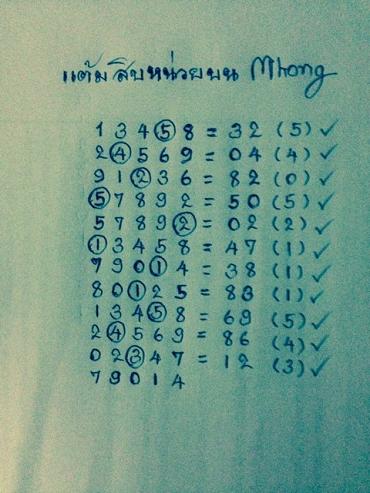 แต้มสิบหน่วยบน Mhong
1 3 4 5 8 = 32 (5) ✓
2 4 5 6 9 = 04 (4) ✓
9 1 2 3 6 = 82 (0) ✓
5 7 8 9 2 = 50 (5) ✓
5 7 8 9 2 = 02 (2) ✓
1 3 4 5 8 = 47 (1) ✓
7 9 0 1 4 = 38 (1) ✓
8 0 1 2 5 = 83 (1) ✓
1 3 4 5 8 = 69 (5) ✓
2 4 5 6 9 = 86 (4) ✓
0 2 3 4 7 = 12 (3) ✓
7 9 0 1 4